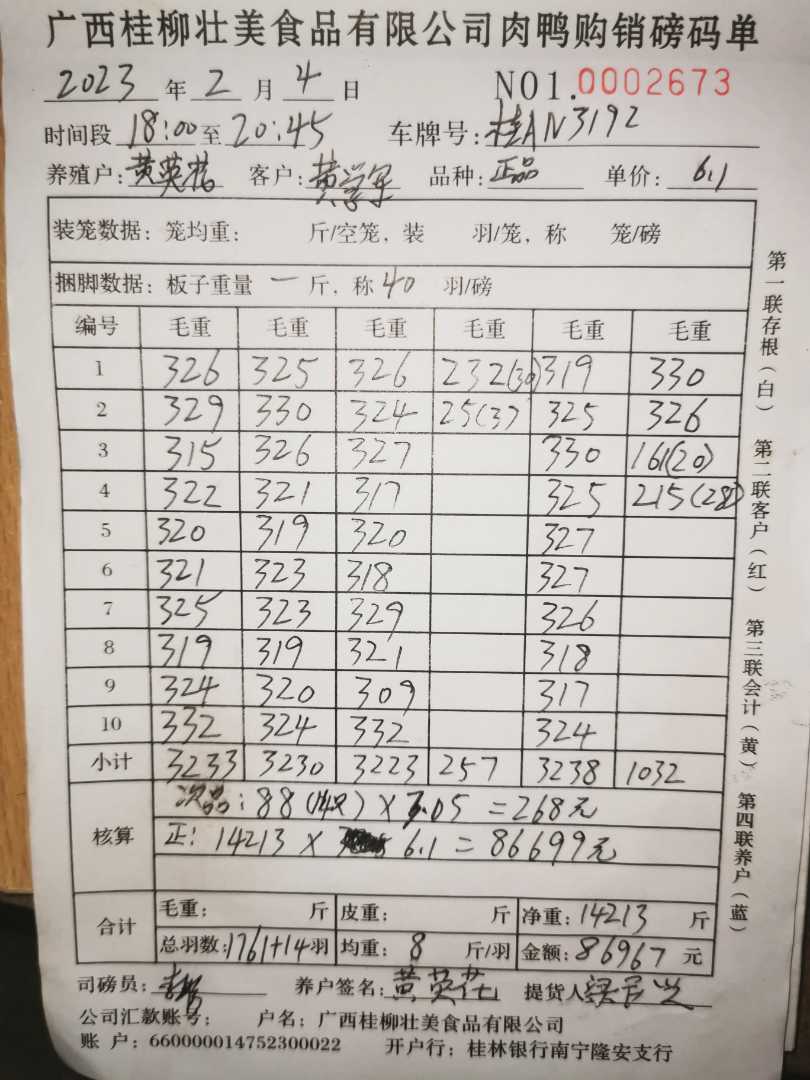 广西桂柳壮美食品有限公司肉鸭购销磅码单
2023年2月4日 NO1.0002673
时间段 18:00至20:45 车牌号:桂AN3192
养殖户:黄英花 客户:黄学军 品种:正品 单价:6.1
装笼数据: 笼均重: 斤/空笼, 装 羽/笼, 称 笼/磅
捆脚数据: 板子重量 一 斤, 称 40 羽/磅
编号 毛重 毛重 毛重 毛重 毛重 毛重
1 326 325 326 232(30) 319 330
2 329 330 324 25(3) 325 326
3 315 326 327 330 161(20)
4 322 321 317 325 215(28)
5 320 319 320 327
6 321 323 318 327
7 325 323 329 326
8 319 319 321 318
9 324 320 309 317
10 332 324 332 324
小计 3233 3230 3223 257 3238 1032
核算
次品:88(14只)×3.05=268元
正:14213× 6.1=86699元
合计
毛重: 斤 皮重: 斤 净重:14213 斤
总羽数:1761+14羽 均重: 8 斤/羽 金额:86967 元
司磅员: 养户签名:黄英花 提货人
公司汇款账号: 户名:广西桂柳壮美食品有限公司
账 户:660000014752300022 开户行:桂林银行南宁隆安支行
第一联存根(白) 第二联客户(红) 第三联会计(黄) 第四联养户(蓝)